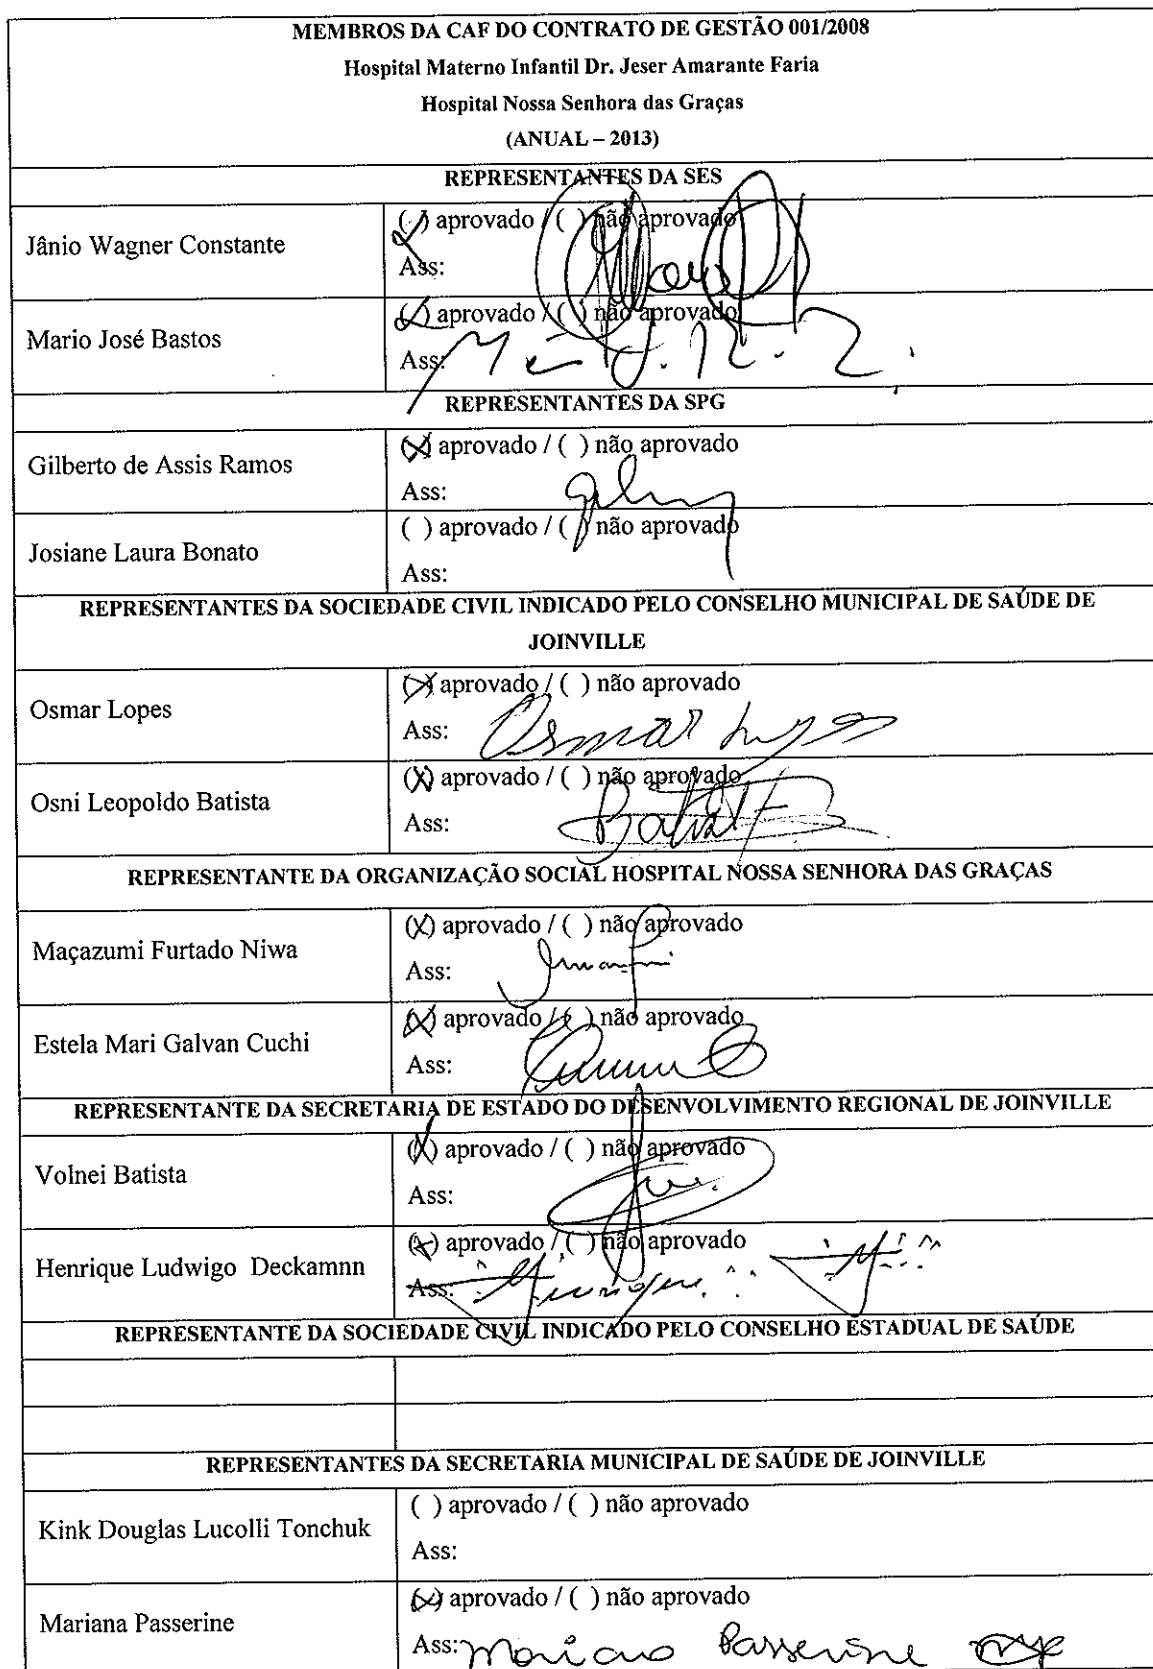 MEMBROS DA CAF DO CONTRATO DE GESTÃO 001/2008
Hospital Materno Infantil Dr. Jeser Amarante Faria
Hospital Nossa Senhora das Graças
(ANUAL – 2013)
REPRESENTANTES DA SES
Jânio Wagner Constante
(X) aprovado / ( ) não aprovado
Ass:
Mario José Bastos
(X) aprovado / ( ) não aprovado
Ass:
REPRESENTANTES DA SPG
Gilberto de Assis Ramos
(X) aprovado / ( ) não aprovado
Ass:
Josiane Laura Bonato
( ) aprovado / ( ) não aprovado
Ass:
REPRESENTANTES DA SOCIEDADE CIVIL INDICADO PELO CONSELHO MUNICIPAL DE SAÚDE DE
JOINVILLE
Osmar Lopes
(X) aprovado / ( ) não aprovado
Ass: Osmar Lopes
Osni Leopoldo Batista
(X) aprovado / ( ) não aprovado
Ass: Batista
REPRESENTANTE DA ORGANIZAÇÃO SOCIAL HOSPITAL NOSSA SENHORA DAS GRAÇAS
Maçazumi Furtado Niwa
(X) aprovado / ( ) não aprovado
Ass:
Estela Mari Galvan Cuchi
(X) aprovado / ( ) não aprovado
Ass:
REPRESENTANTE DA SECRETARIA DE ESTADO DO DESENVOLVIMENTO REGIONAL DE JOINVILLE
Volnei Batista
(X) aprovado / ( ) não aprovado
Ass:
Henrique Ludwigo Deckamnn
(X) aprovado / ( ) não aprovado
Ass:
REPRESENTANTE DA SOCIEDADE CIVIL INDICADO PELO CONSELHO ESTADUAL DE SAÚDE
REPRESENTANTES DA SECRETARIA MUNICIPAL DE SAÚDE DE JOINVILLE
Kink Douglas Lucolli Tonchuk
( ) aprovado / ( ) não aprovado
Ass:
Mariana Passerine
(X) aprovado / ( ) não aprovado
Ass: Mariana Passerine